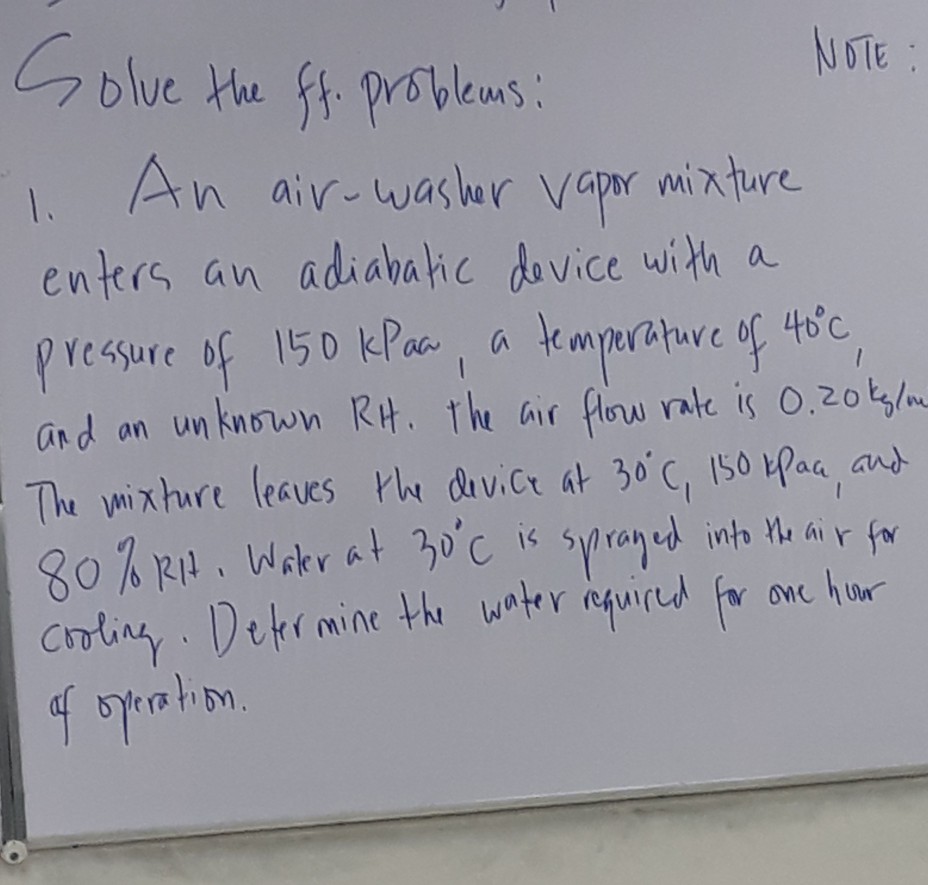 NOTE :
Solve the ff. problems:
1. An air-washer vapor mixture
enters an adiabatic device with a
pressure of 150 kPaa, a temperature of 40°C,
and an unknown RH. The air flow rate is 0.20 kg/m
The mixture leaves the device at 30°C, 150 kPaa, and
80% RH. Water at 30°C is sprayed into the air for
cooling. Determine the water required for one hour
of operation.